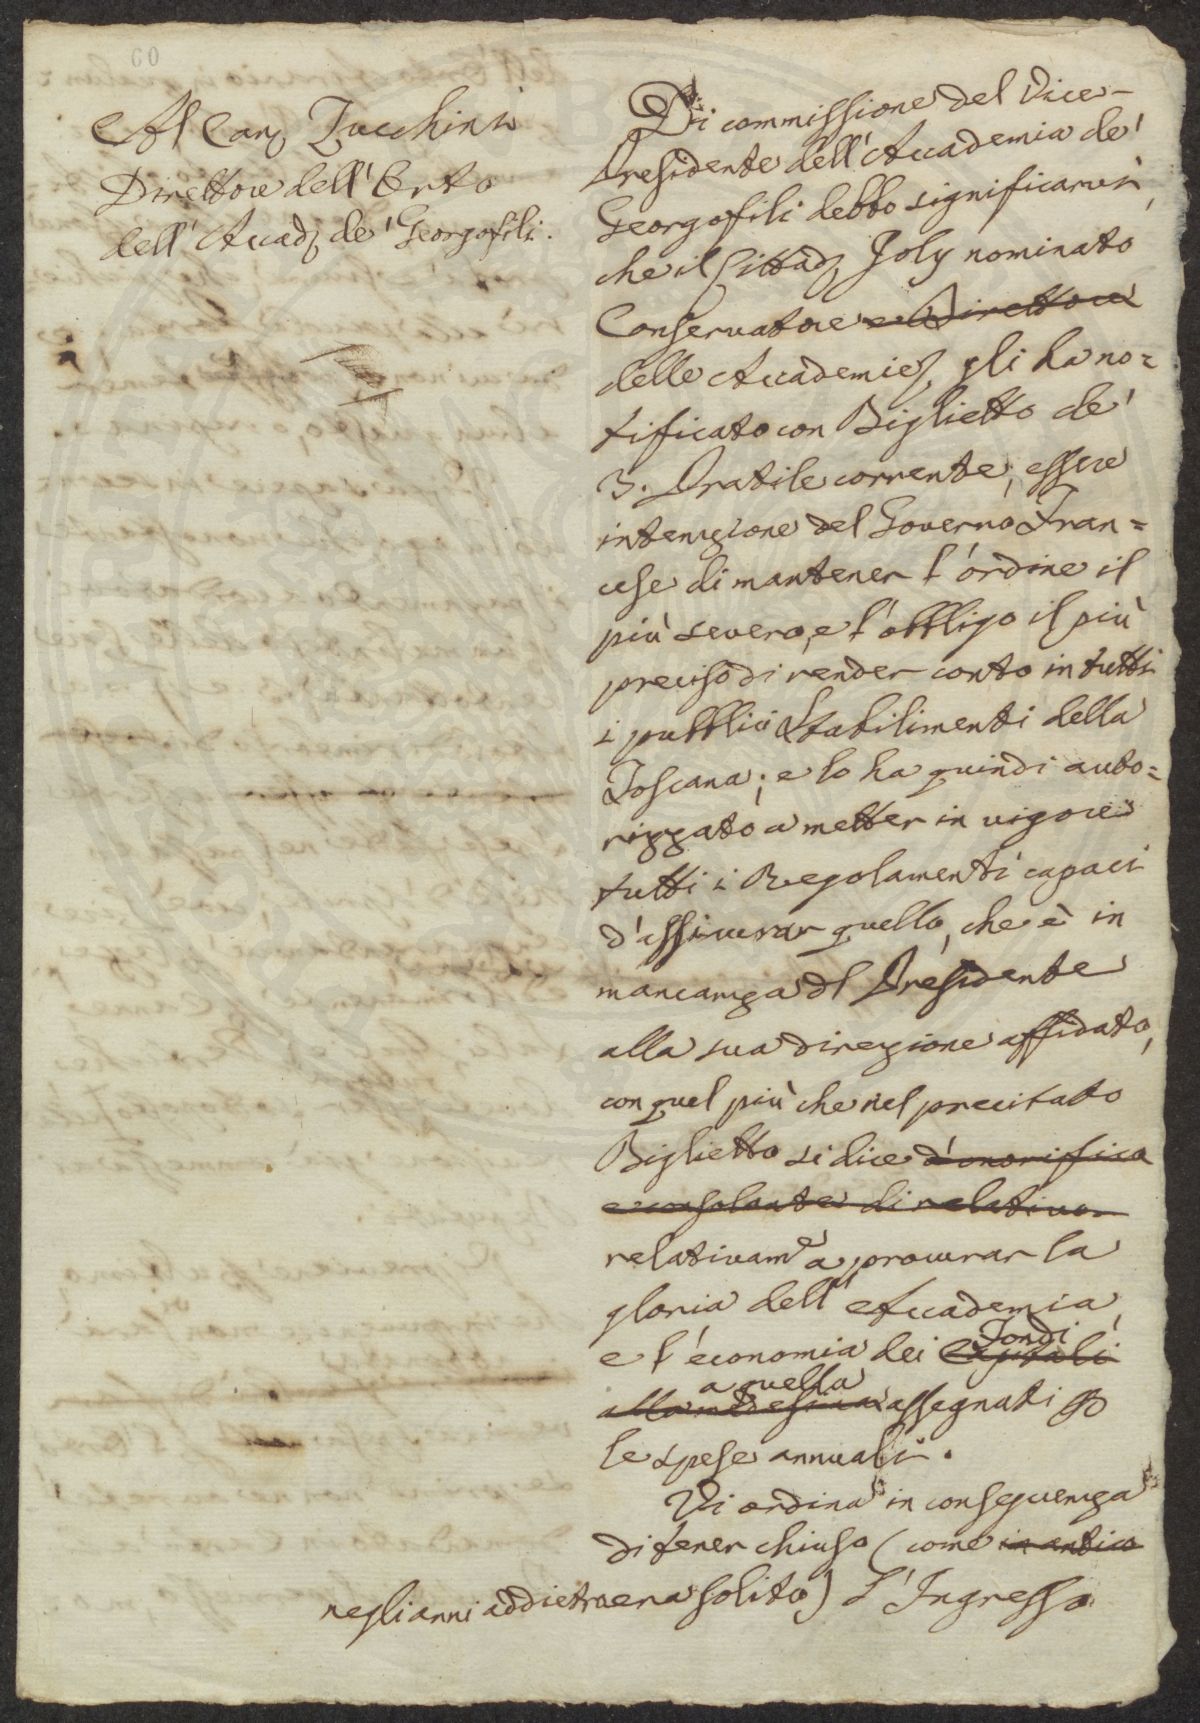 60
Al Can. Zucchini
Direttore dell' Orto
dell' Accad. de' Georgofili.
Di commissione del Vice-
Presidente dell' Accademia de'
Georgofili debbo significarvi,
che il Cittad. Joly nominato
Conservatore e Direttore
delle Accademie, gli ha no=
tificato con Biglietto de'
3. Pratile corrente, essere
intenzione del Governo Fran=
cese di mantener l'ordine il
più severo, e l'obbligo il più
preciso di render conto in tutti
i pubblici Stabilimenti della
Toscana; e lo ha quindi auto=
rizzato a metter in vigore
tutti i Regolamenti capaci
d'assicurar quello, che è in
mancanza dl Presidente
alla sua direzione affidato,
con quel più che nel precitato
Biglietto si dice d'onorifico
e consolante di relativo
relativam.e a procurar la
gloria dell' Accademia,
e l'economia dei Capitali Fondi
alla medesima a quella assegnati p
le spese annuali.
Vi ordina in conseguenza
di tener chiuso (come in antico
negli anni addietro era solito) l'Ingresso